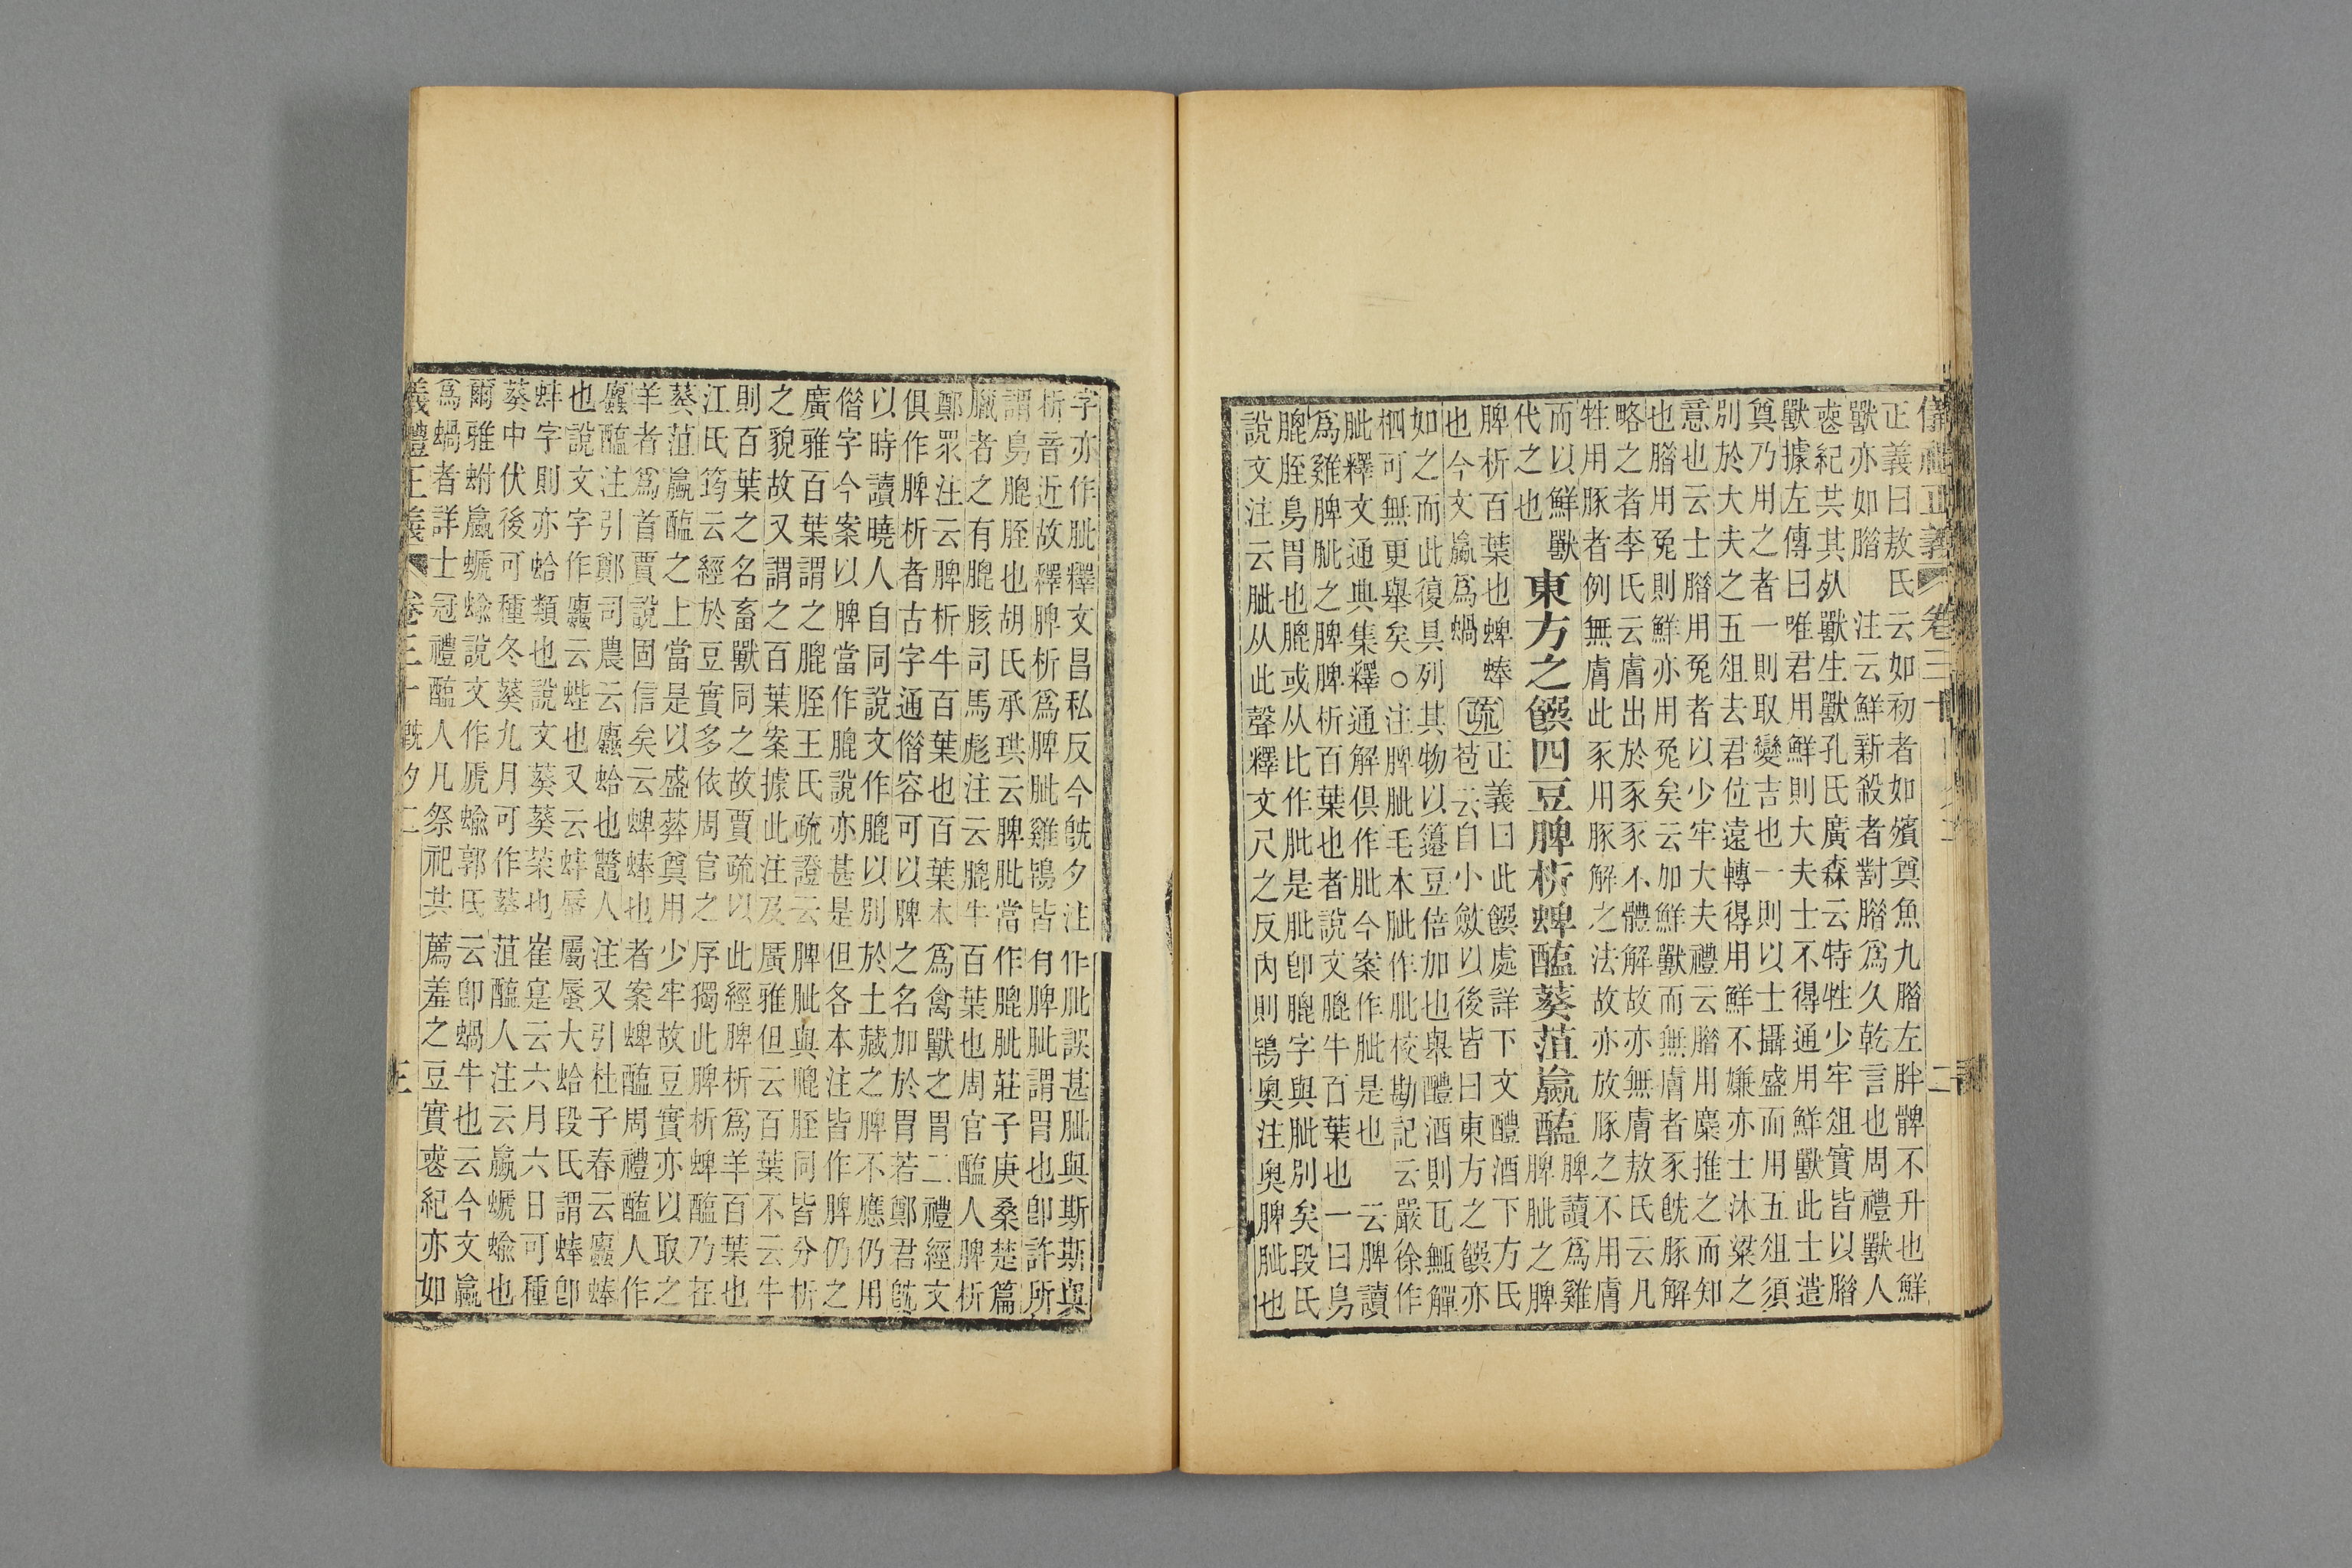 儀禮正義 卷三十 既夕二 二
正義曰敖氏云如初者如殯奠魚九腊左胖髀不升也鮮
獸亦如腊 注云鮮新殺者對腊爲久乾言也周禮獸人
喪紀共其𣦸獸生獸孔氏廣森云特牲少牢俎實皆以腊
獸據左傳曰唯君用鮮則大夫士不得通用鮮獸此士遣
奠乃用之者一則取變吉也一則以士攝盛而用五俎須
別於大夫之五俎去君位遠轉得用鮮不嫌亦士沐粱之
意也云士腊用兔者以少牢大夫禮云腊用麋推之而知
也腊用兔則鮮亦用兔矣云加鮮獸而無膚者豕旣豚解
略之者李氏云膚出於豕豕不體解故亦無膚敖氏云凡
牲用豚者例無膚此豕用豚解之法故亦放豚之不用膚
而以鮮獸
代之也
東方之饌四豆脾析蜱醢葵菹蠃醢 脾讀爲雞脾肶之脾
脾析百葉也蜱蜯
也今文蠃爲蝸
疏 正義曰此饌處詳下文醴酒下方氏
苞云自小斂以後皆曰東方之饌亦
如之而此復具列其物以籩豆倍加也舉醴酒則瓦甒觶
柶可無更舉矣○注脾肶毛本肶作肶校勘記云嚴徐作
肶釋文通典集釋通解俱作肶今案作肶是也 云脾讀
爲雞脾肶之脾脾析百葉也者說文膍牛百葉也一曰鳥
膍胵鳥胃也膍或从比作肶是肶卽膍字與肶別矣段氏
說文注云肶从此聲釋文尺之反內則鴇奧注奧脾肶也
字亦作肶釋文昌私反今旣夕注作肶誤甚肶與斯斯與
析音近故釋脾析爲脾肶雞鴇皆有脾肶謂胃也卽許所
謂鳥膍胵也胡氏承珙云脾肶當作膍肶莊子庚桑楚篇
臘者之有膍胲司馬彪注云膍牛百葉也周官醢人脾析
鄭眾注云脾析牛百葉也百葉本爲禽獸之胃二禮經文
俱作脾析者古字通借容可以脾之名加於胃若鄭君旣
以時讀曉人自同說文作膍以別於土藏之脾不應仍用
借字今案以脾當作膍說亦甚是但各本注皆作脾仍之
廣雅百葉謂之膍胵王氏疏證云脾肶與膍胵同皆分析
之貌故又謂之百葉案據此注及廣雅但云百葉不云牛
則百葉之名畜獸同之故賈疏以此經脾析爲羊百葉也
江氏筠云經於豆實多依周官之序獨此脾析蜱醢乃在
葵菹蠃醢之上當是以盛葬奠用少牢故豆實亦以取之
羊者爲首賈說固信矣云蜱蜯也者案蜱醢周禮醢人作
蠯醢注引鄭司農云蠯蛤也鼈人注又引杜子春云蠯蜯
也說文字作蠯云蜌也又云蚌蜃屬蜃大蛤段氏謂蜯卽
蚌字則亦蛤類也說文葵葵菜也崔寔云六月六日可種
葵中伏後可種冬葵九月可作葵菹醢人注云蠃螔蝓也
爾雅蚹蠃螔蝓說文作虒蝓郭氏云卽蝸牛也云今文蠃
爲蝸者詳士冠禮醢人凡祭祀共薦羞之豆實喪紀亦如
義禮正義 卷三十 旣夕二 三